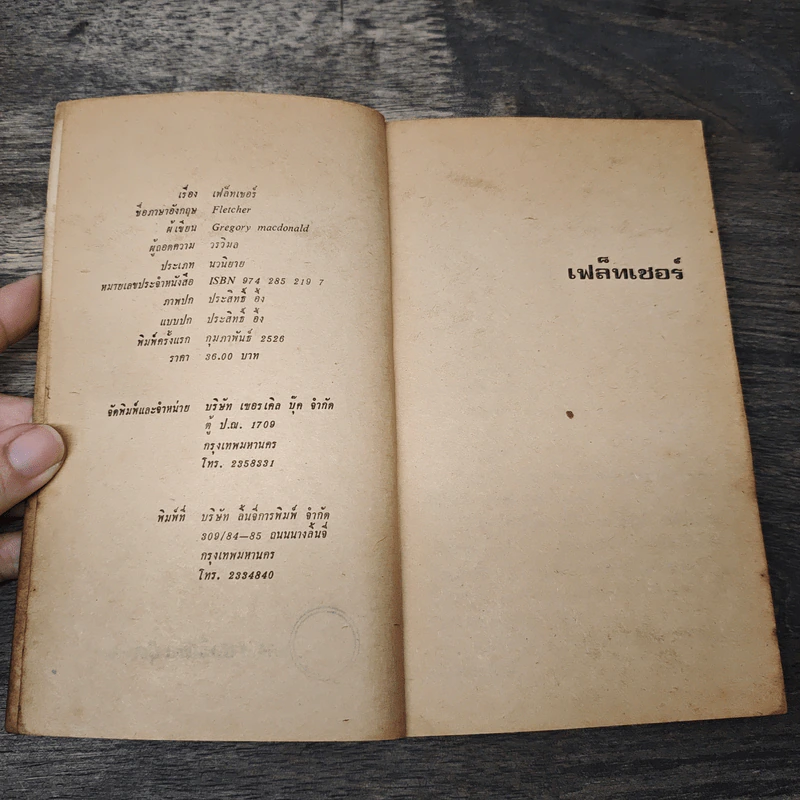 เรื่อง เฟล็ทเชอร์
ชื่อภาษาอังกฤษ Fletcher
ผู้เขียน Gregory macdonald
ผู้ถอดความ วรวิมล
ประเภท นวนิยาย
หมายเลขประจำหนังสือ ISBN 974 285 219 7
ภาพปก ประสิทธิ์ อึ้ง
แบบปก ประสิทธิ์ อึ้ง
พิมพ์ครั้งแรก กุมภาพันธ์ 2526
ราคา 36.00 บาท
จัดพิมพ์และจำหน่าย บริษัท เซอรเคิล บุ๊ค จำกัด
ตู้ ป.ณ. 1709
กรุงเทพมหานคร
โทร. 2358331
พิมพ์ที่ บริษัท ลิ้นจี่การพิมพ์ จำกัด
309/84-85 ถนนนางลิ้นจี่
กรุงเทพมหานคร
โทร. 2334840
เฟล็ทเชอร์